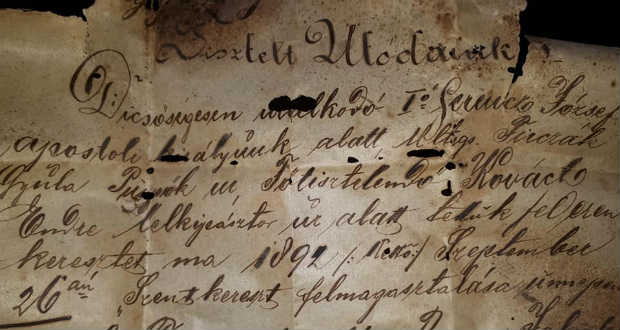 Tisztelt Utódaink
Dicsőségesen uralkodó Iő Ferencz József
apostoli királyunk alatt,
Gyula Püspök ur Főtisztelendő Kovách
Endre lelkipásztor úr alatt tettük fel ezen
keresztet ma 1892 /: Kettő :/ Szeptember
26 án „Szent kereszt felmagasztalása ünnepén